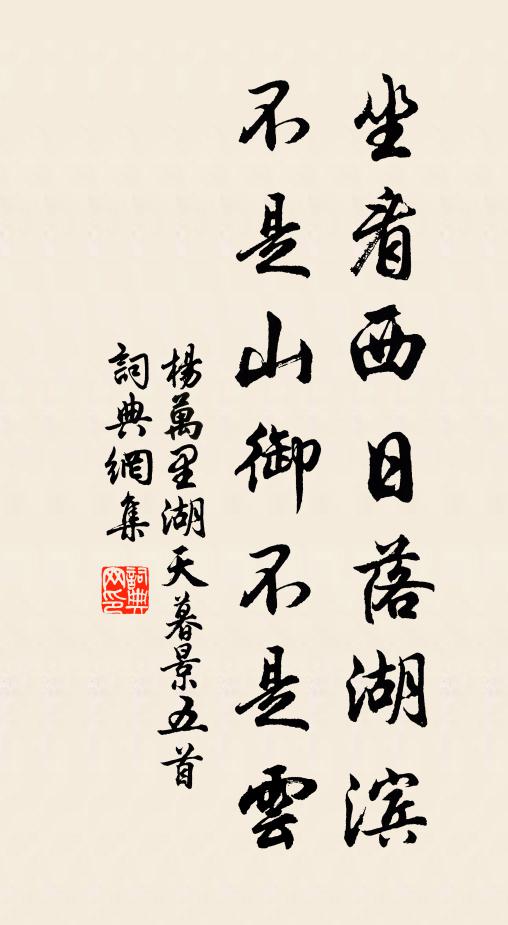 坐看西日落湖滨
不是山御不是雲
楊萬里湖天暮景五首
詞典網集
詞典网印